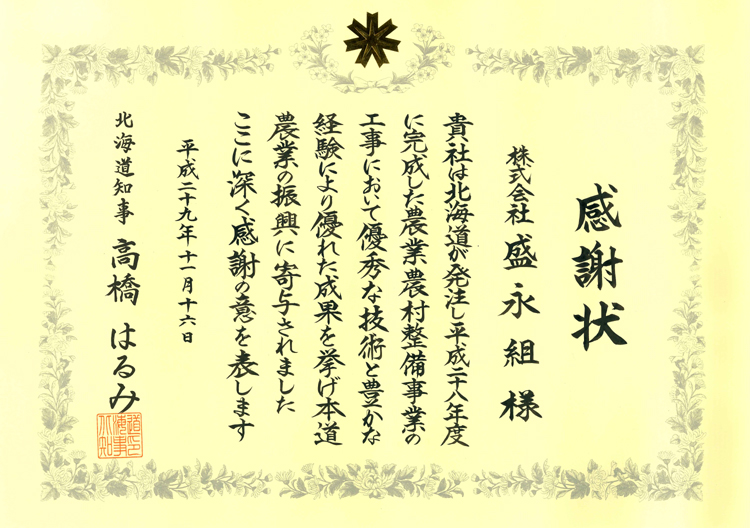 感謝状
株式会社 盛永組 様
貴社は北海道が発注し平成二十八年度
に完成した農業農村整備事業の
工事において優秀な技術と豊かな
経験により優れた成果を挙げ本道
農業の振興に寄与されました
ここに深く感謝の意を表します
平成二十九年十一月十六日
北海道知事 高橋 はるみ